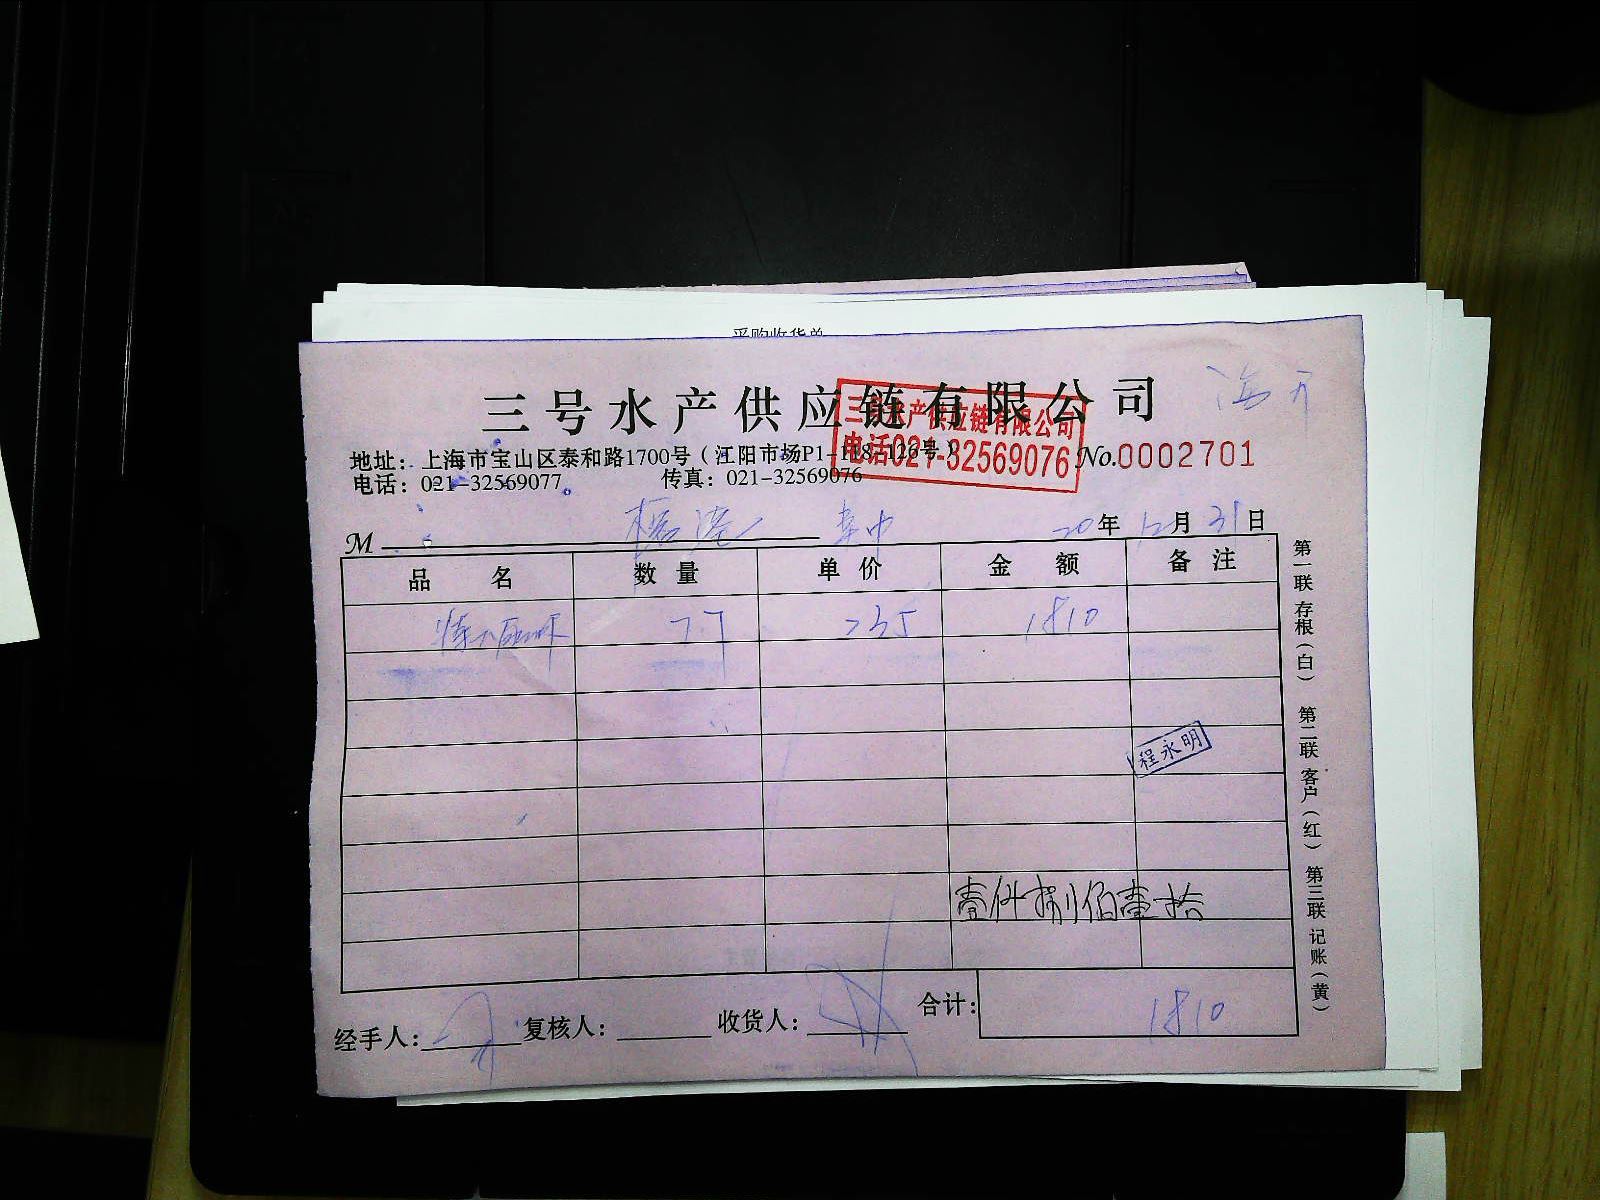 采购收货单
三号水产供应链有限公司
三号水产供应链有限公司
电话021-32569076
地址：上海市宝山区泰和路1700号（江阳市场P1-118-126号）
No.0002701
电话：021-32569077。 传真：021-32569076
M 20年12月31日
品名 数量 单价 金额 备注
77 235 1810
程永明
壹仟捌佰壹拾
经手人： 复核人： 收货人： 合计：1810
第一联 存根（白） 第二联 客户（红） 第三联 记账（黄）